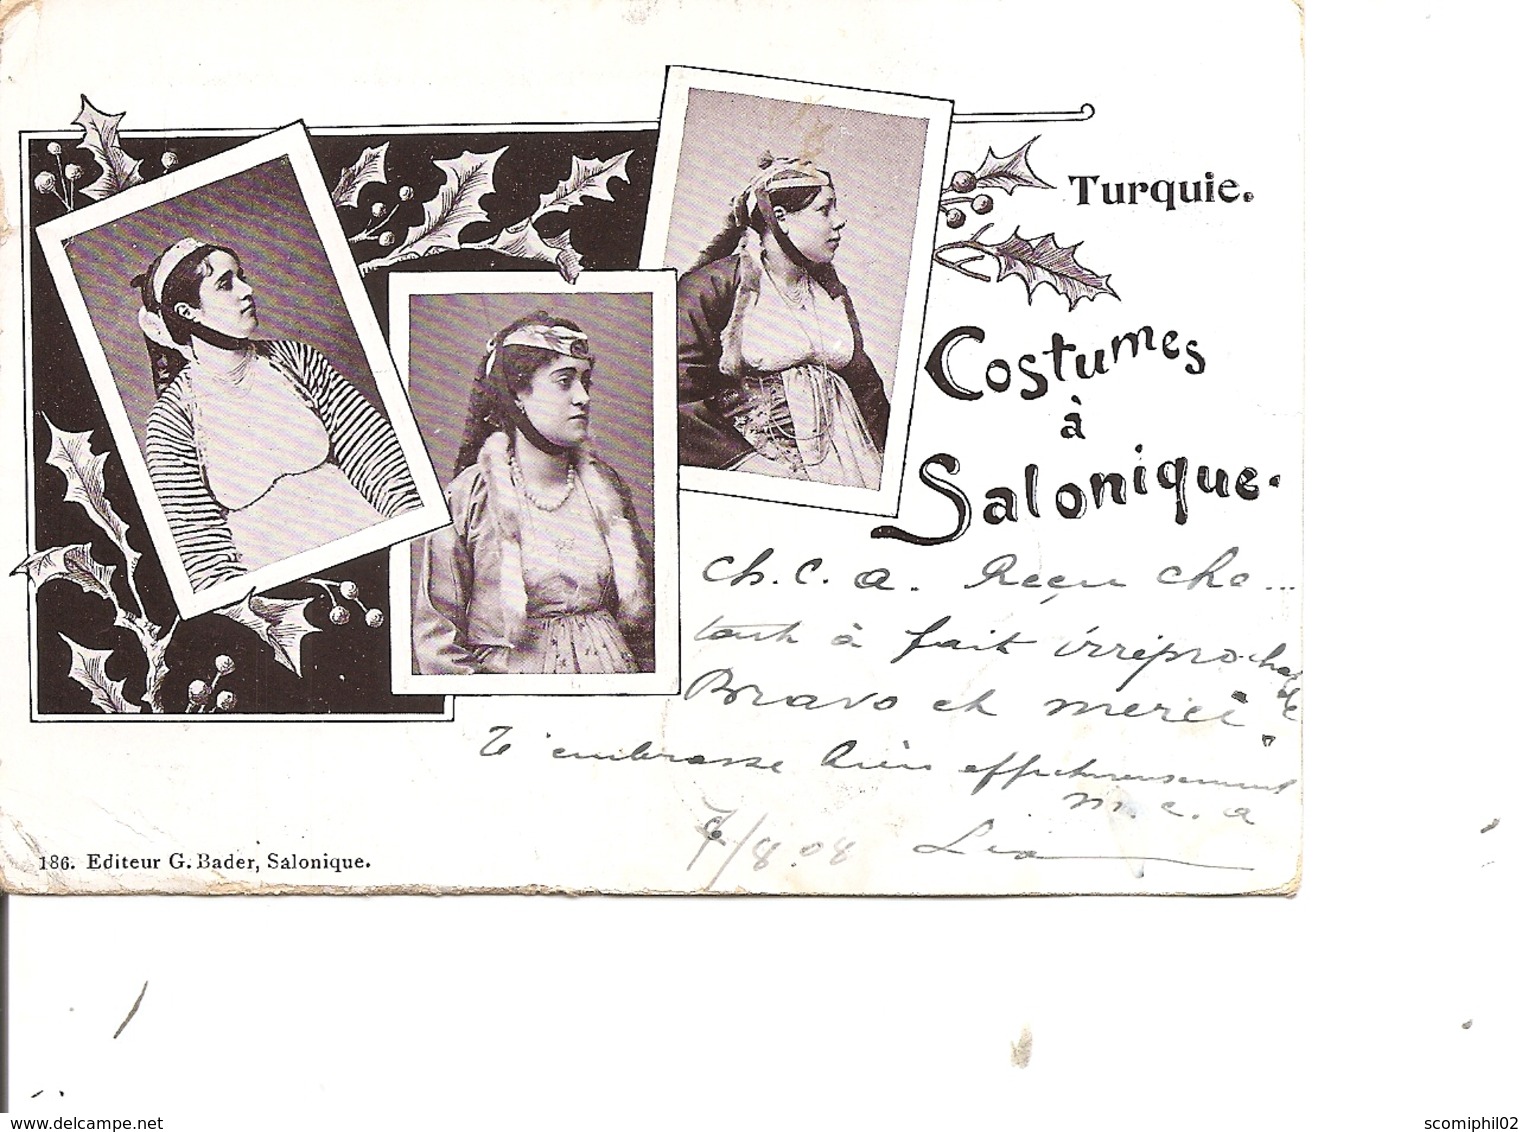 Turquie.
Costumes
à
Salonique.
Ch. C. A. Reçu che...
tout à fait irréprochable
Bravo et merci
T'embrasse bien affectueusement
M. C. A
Léa
7/8.08
186. Editeur G. Bader, Salonique.
www.delcampe.net
scomiphil02